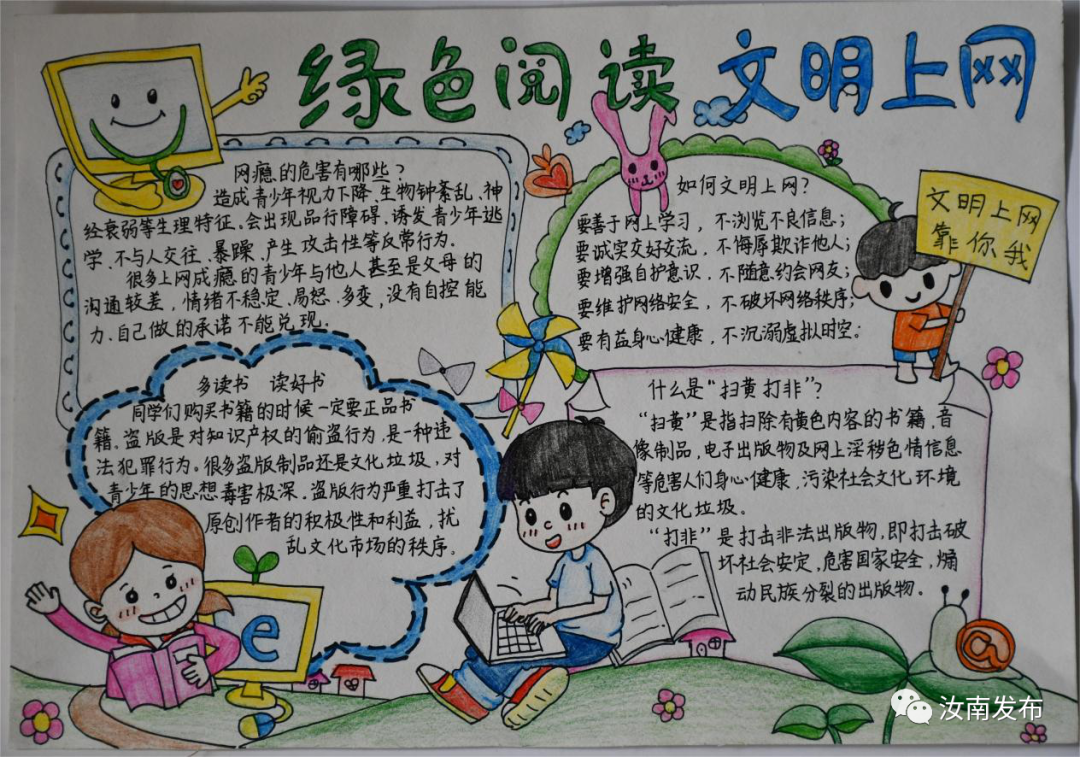 绿色阅读 文明上网
网瘾的危害有哪些?
造成青少年视力下降、生物钟紊乱、神
经衰弱等生理特征。会出现品行障碍、诱发青少年逃
学、不与人交往、暴躁、产生攻击性等反常行为.
很多上网成瘾的青少年与他人甚至是父母的
沟通较差，情绪不稳定、易怒、多变，没有自控能
力、自己做的承诺不能兑现.
如何文明上网?
要善于网上学习，不浏览不良信息；
要诚实交好交流，不侮辱欺诈他人；
要增强自护意识，不随意约会网友；
要维护网络安全，不破坏网络秩序；
要有益身心健康，不沉溺虚拟时空。
文明上网
靠你我
多读书 读好书
同学们购买书籍的时候一定要正品书
籍。盗版是对知识产权的偷盗行为，是一种违
法犯罪行为。很多盗版制品还是文化垃圾，对
青少年的思想毒害极深。盗版行为严重打击了
原创作者的积极性和利益，扰
乱文化市场的秩序。
什么是“扫黄打非”?
“扫黄”是指扫除有黄色内容的书籍，音
像制品，电子出版物及网上淫秽色情信息
等危害人们身心健康，污染社会文化环境
的文化垃圾。
“打非”是打击非法出版物，即打击破
坏社会安定，危害国家安全，煽
动民族分裂的出版物。
e
@
汝南发布